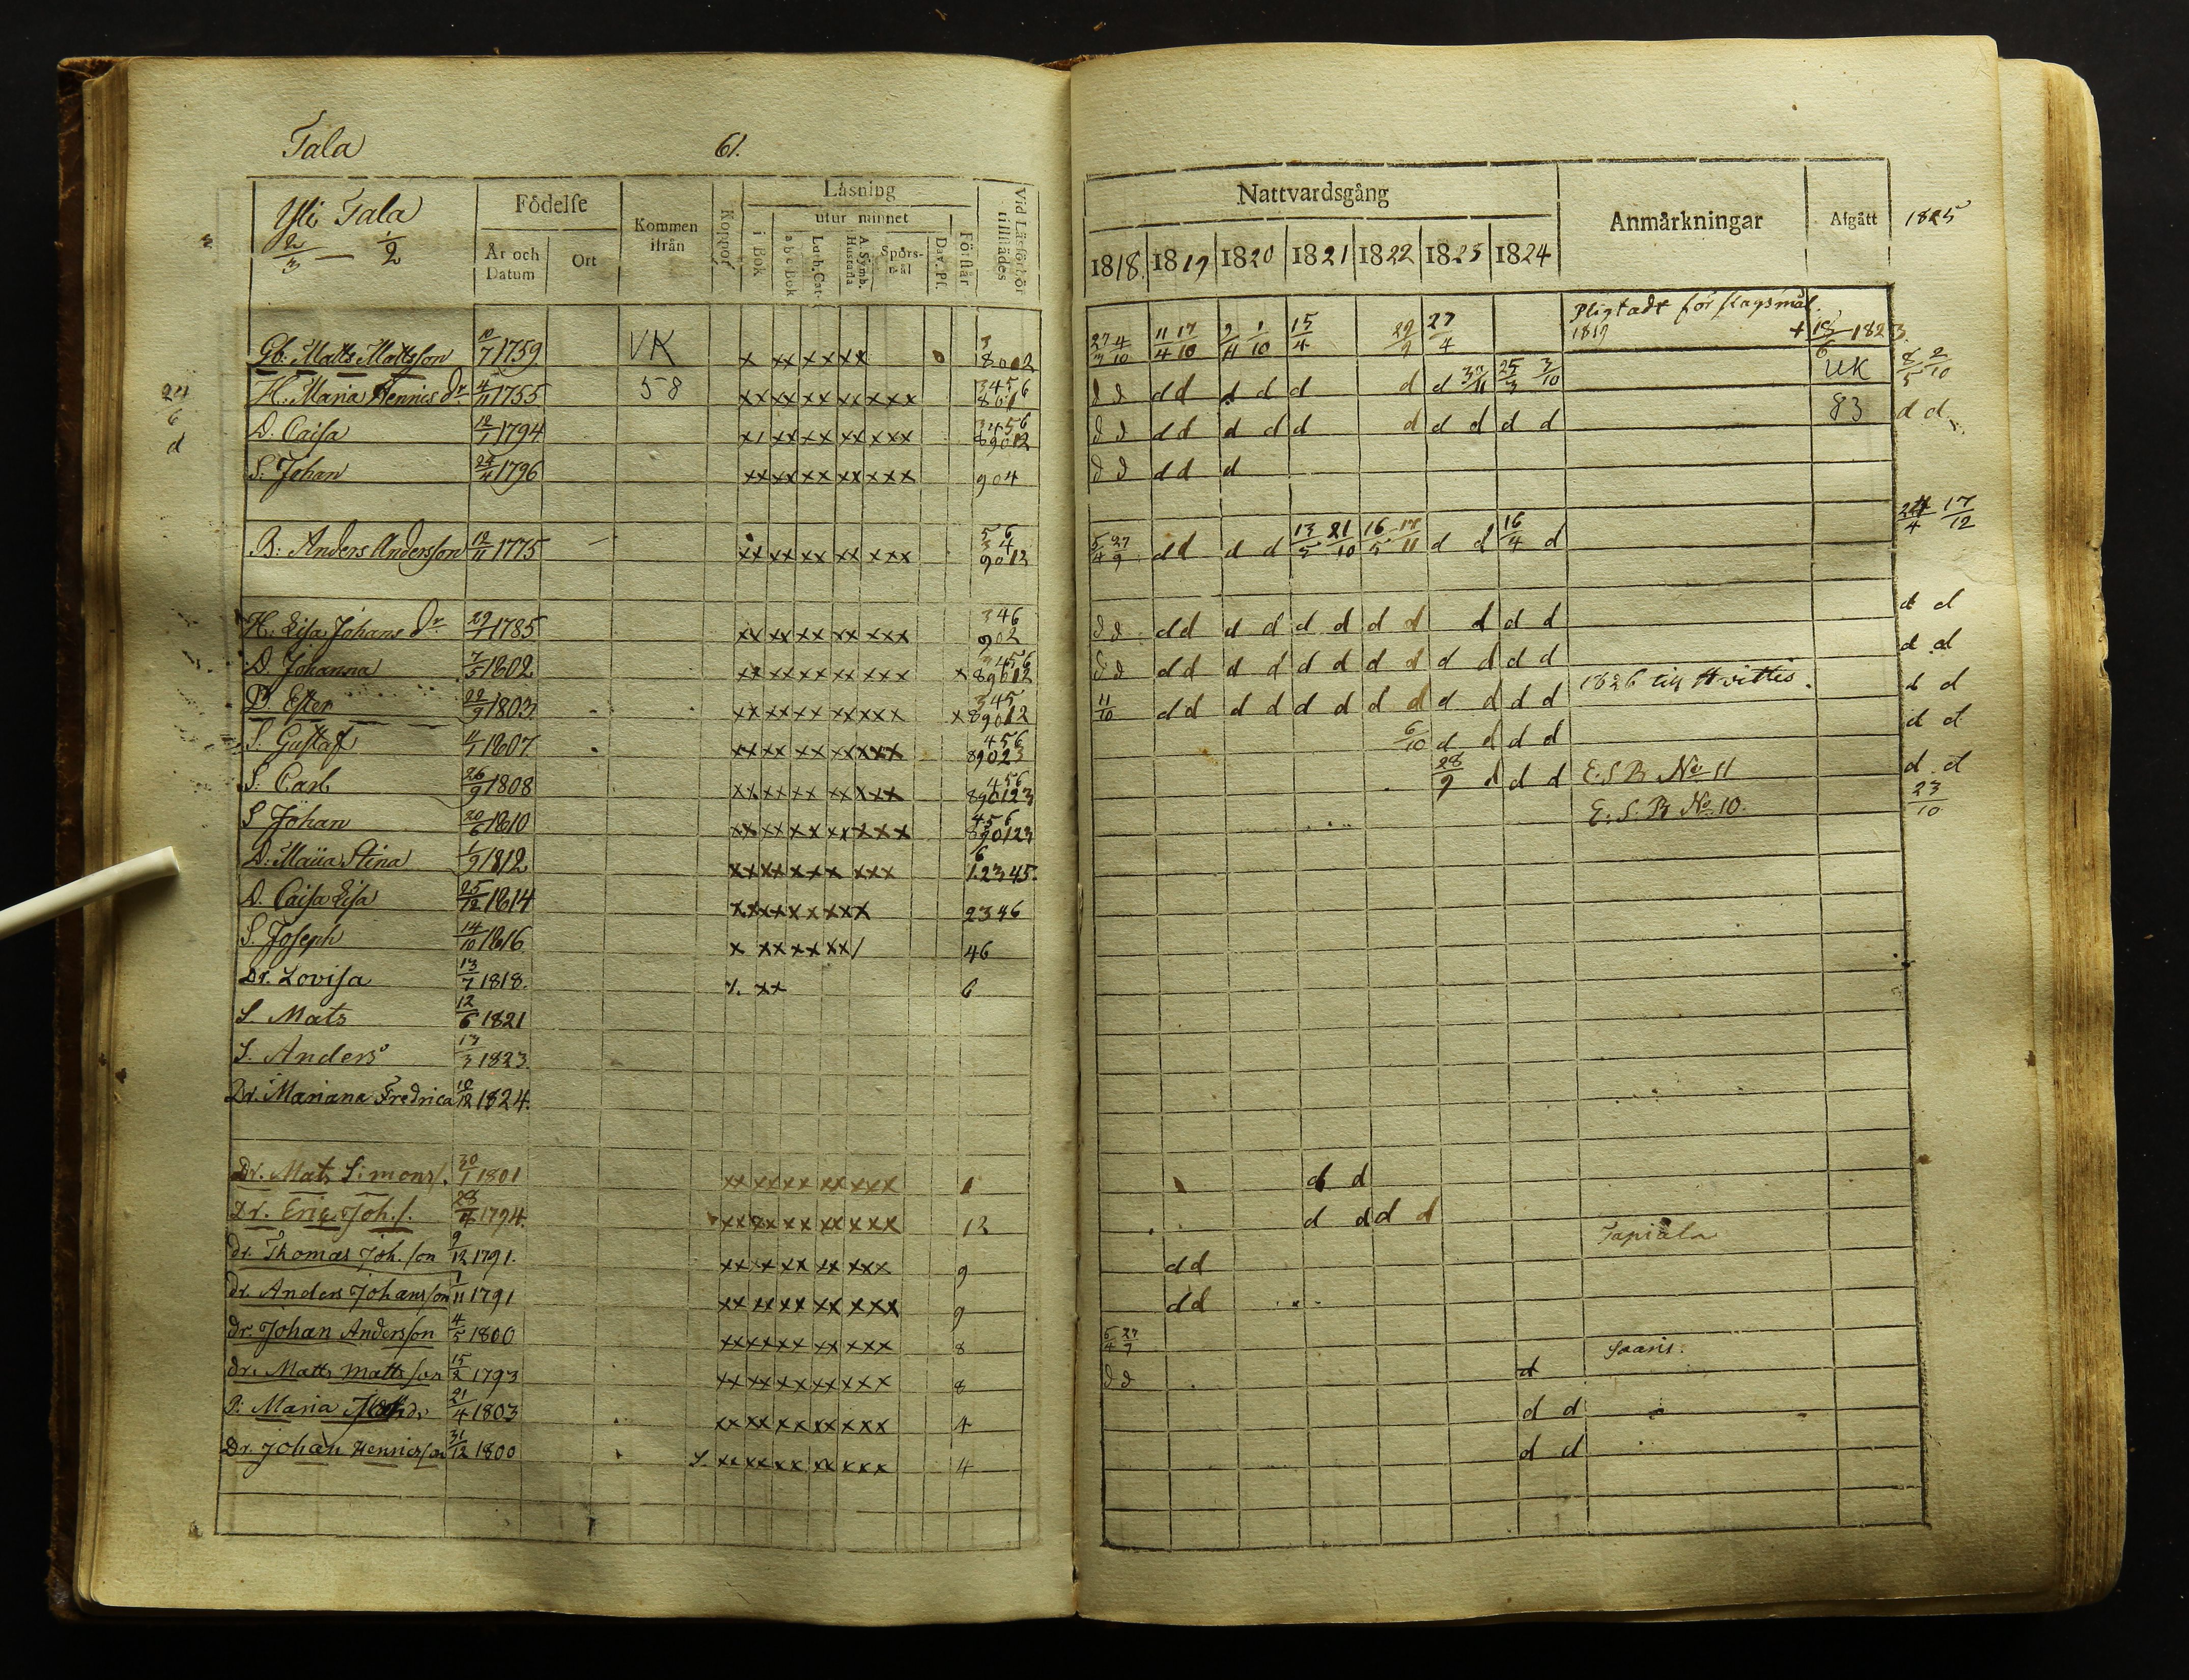 Tala 61.
Yli Tala Födelse Kommen ifrån Koppor Läsning Vid Läsförhör tillstädes
2/3 — 1/2 År och Datum Ort i Bok utur minnet Förstår
a b c Bok Luth. Cat. A. Symb. Hustafla Spörsmål Dav. Ps.
Gb: Matts Mattsson 10/7 1759 VK x xx x x xx
H: Maria Henrics Dr 4/11 1755 58 xx xx xx xx xxx 3456 801
D. Caisa 12/1 1794 3456 89012
S. Johan 24/4 1796 xx xx xx xx xxx 904
B: Anders Andersson 1775 xx xx xx xx xxx 56 34 9012
H. Lisa Johans Dr 29/1 1785 xx xx xx xx xxx 346 902
D. Johanna 7/5 1802 xx xx xx xx xxx x 3456 89012
D. Ester 22/9 1803 xx xx xx xx xxx x 345 89012
S. Gustaf 11/1 1807 xx xx xx xx xxx 456 89023
S. Carl 26/9 1808 xx xx xx xx xxx 456 890123
S Johan 20/6 1810 xx xx xx xx xxx 456 890123
D: Maija Stina 1/9 1812 xx xx xx x xxx 6 12345.
D. Caisa Lisa 25/12 1814 2346
S. Joseph 14/10 1816 x xx xx xx/ 46
Dr. Lovisa 13/7 1818. xx 6
S. Mats 12/6 1821
S. Anders 1823
Dr. Mariana Fredrica 1824.
Dr. Mats Simons. 30/1 1801 xx xx xx xx xxx 1
Dr. Eric Joh. s. 28/4 1794. xx xx xx xx xxx 12
dr. Thomas Joh. son 9/12 1791. xx xx xx xx xxx 9
dr. Anders Johansson 1/11 1791 xx xx xx xx xxx 9
dr. Johan Andersson 4/5 1800 xx xx xx xx xxx 8
dr. Matts Mattsson 15/2 1793 xx xx xx xx xxx 8
P: Maria 21/4 1803 xx xx xx xx xxx 4
Dr. Johan Henricsson 31/12 1800 xx xx xx xx xxx 4
24/6
d
Nattvardsgång Anmärkningar Afgått 1825
1818. 1819 1820 1821 1822 1823 1824
27/3 4/10 11/4 17/10 1/10 15/4 29/9 27/4 Pligtadt för slagsmål. 1819 + 1823.
d d d d d d d d d 30/11 25/3 3/10 UK 8/5 2/10
d d d d d d d d d d d d 83 d d
d d d d d
5/4 27/9 d d d d 13/5 21/10 16/5 17/11 d d 16/4 d 24/4 17/12
d d d d d d d d d d d d d d d
d d d d d d d d d d d d d d d d
11/10 d d d d d d d d d d d d 1826 till Hvittis. d d
6/10 d d d d d d
28/9 d d d E. S B No 11 d d
E. S. B No 10. 23/10
d d
d d d d
d d Tapiala
d d
5/4 27/9
d d d Saaris.
d d
d d